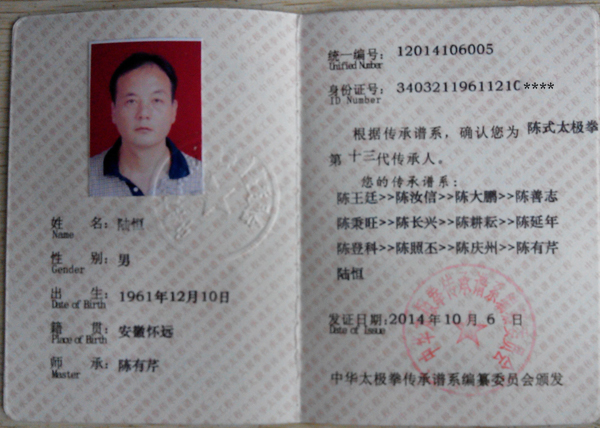 姓 名：陆恒
Name
性 别：男
Gender
出 生：1961年12月10日
Date of Birth
籍 贯：安徽怀远
Place of Birth
师 承：陈有芹
Master
统一编号：12014106005
Unified Number
身份证号：34032119611210****
ID Number
根据传承谱系，确认您为 陈式太极拳
第 十三代传承人。
您的传承谱系：
陈王廷>>陈汝信>>陈大鹏>>陈善志
陈秉旺>>陈长兴>>陈耕耘>>陈延年
陈登科>>陈照丕>>陈庆州>>陈有芹
陆恒
发证日期：2014年10月 6 日
Date of Issue
中华太极拳传承谱系编纂委员会颁发